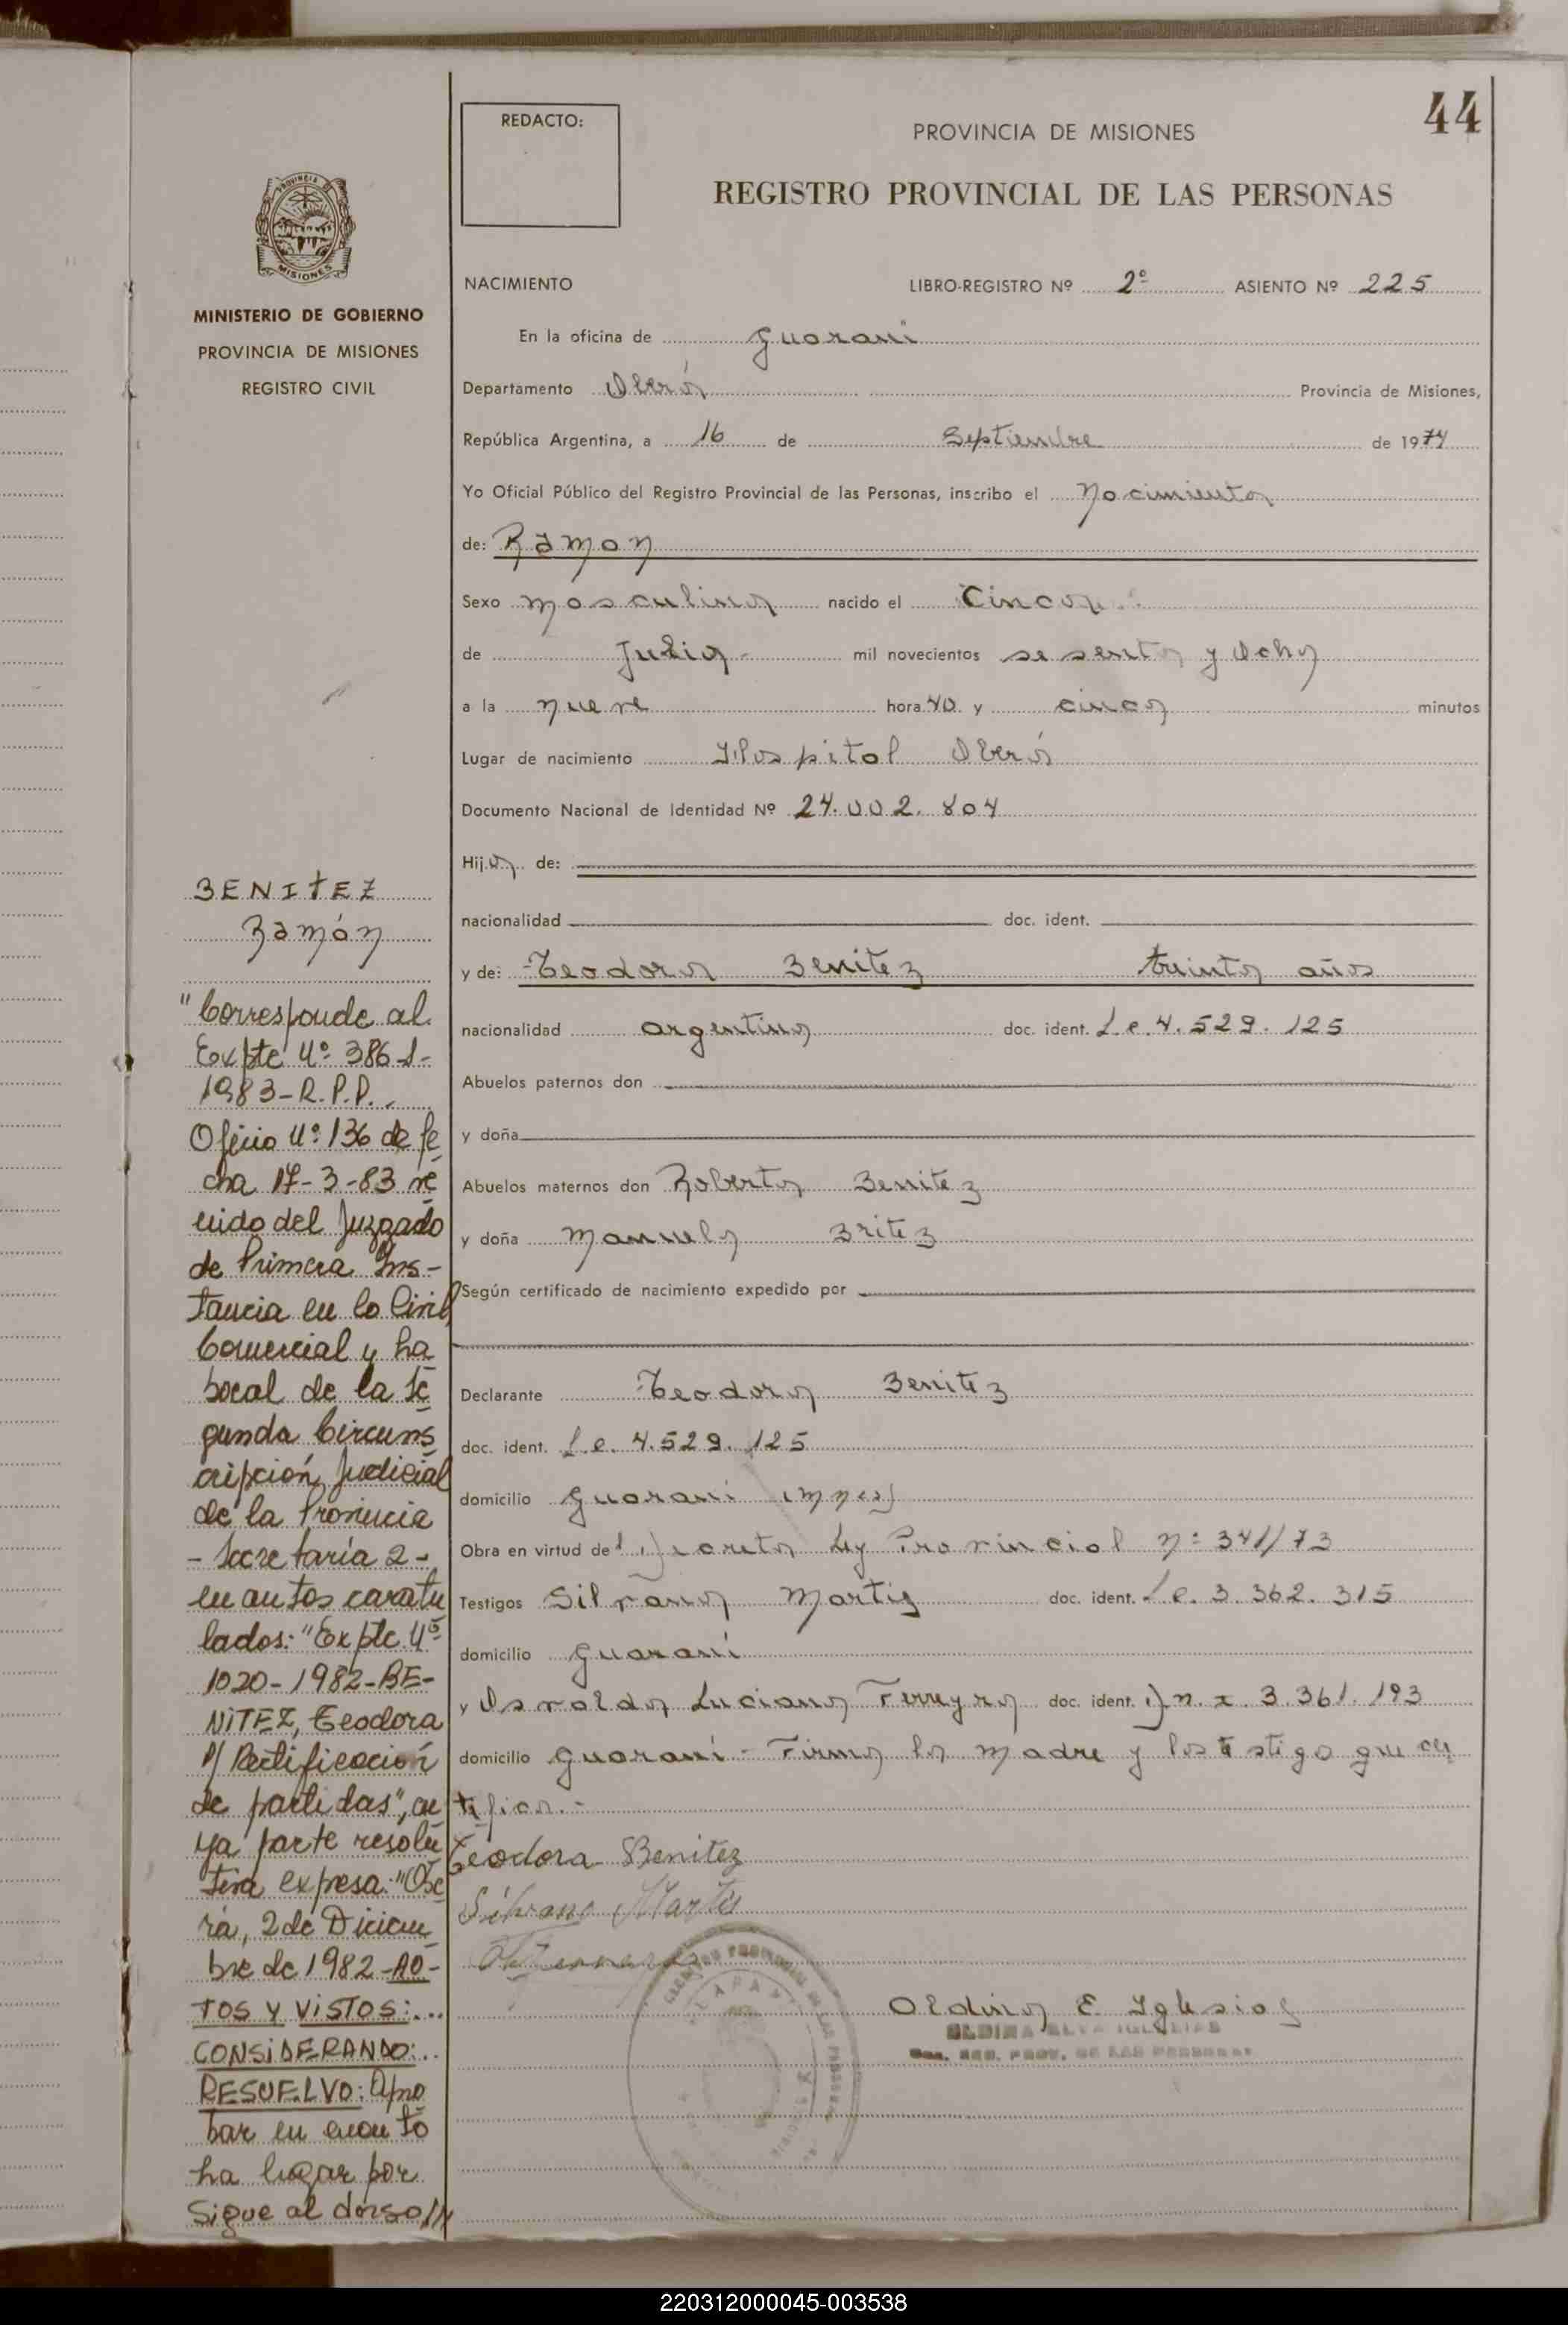 44
REDACTO:
PROVINCIA DE MISIONES
REGISTRO PROVINCIAL DE LAS PERSONAS
PROVINCIA DE
MISIONES
MINISTERIO DE GOBIERNO
PROVINCIA DE MISIONES
REGISTRO CIVIL
NACIMIENTO LIBRO-REGISTRO Nº 2º ASIENTO Nº 225
En la oficina de Guarani
Departamento Oberá Provincia de Misiones,
República Argentina, a 16 de Septiembre de 1974
Yo Oficial Público del Registro Provincial de las Personas, inscribo el Nacimiento
de: Ramon
Sexo masculino nacido el Cinco
de Julio - mil novecientos sesenta y Ocho
a la nueve hora 40 y cinco minutos
Lugar de nacimiento Hospital Oberá
Documento Nacional de Identidad Nº 24.002.804
Hijo de:
nacionalidad doc. ident.
y de: Teodora Benitez treinta años
nacionalidad argentina doc. ident. L.c. 4.529.125
Abuelos paternos don
y doña
Abuelos maternos don Roberto Benitez
y doña Manuela Britez
Según certificado de nacimiento expedido por
Declarante Teodora Benitez
doc. ident. L.c. 4.529.125
domicilio Guarani (Mnes)
Obra en virtud del Decreto Ley Provincial Nº 341/73
Testigos Silvano Martis doc. ident. L.e. 3.362.315
domicilio Guarani
y Osvaldo Luciano Ferreyra doc. ident. D.n.i. 3.361.193
domicilio Guarani - Firma la Madre y los testigo que cer
tifica.-
Teodora Benitez
Silvano Martis
Oldina E Iglesias
OLDINA ELVA IGLESIAS
REG. PROV. DE LAS PERSONAS
BENITEZ
Ramón
"Corresponde al
Expte Nº 386-L-
1983-R.P.P.
Oficio Nº 136 de fe
cha 17-3-83 ve
nido del Juzgado
de Primera Ins-
tancia en lo Civil,
Comercial y La
boral de la Se
gunda Circuns
cripción Judicial
de la Provincia
- Secretaría 2 -
en autos caratu
lados: "Expte Nº
1020-1982-BE-
NITEZ, Teodora
P/ Rectificación
de partidas", cu
ya parte resolu
tiva expresa: "Obe
rá, 2 de Diciem
bre de 1982-AU-
TOS Y VISTOS:...
CONSIDERANDO:..
RESUELVO: Apro
bar en cuanto
ha lugar por
Sigue al dorso//
220312000045-003538